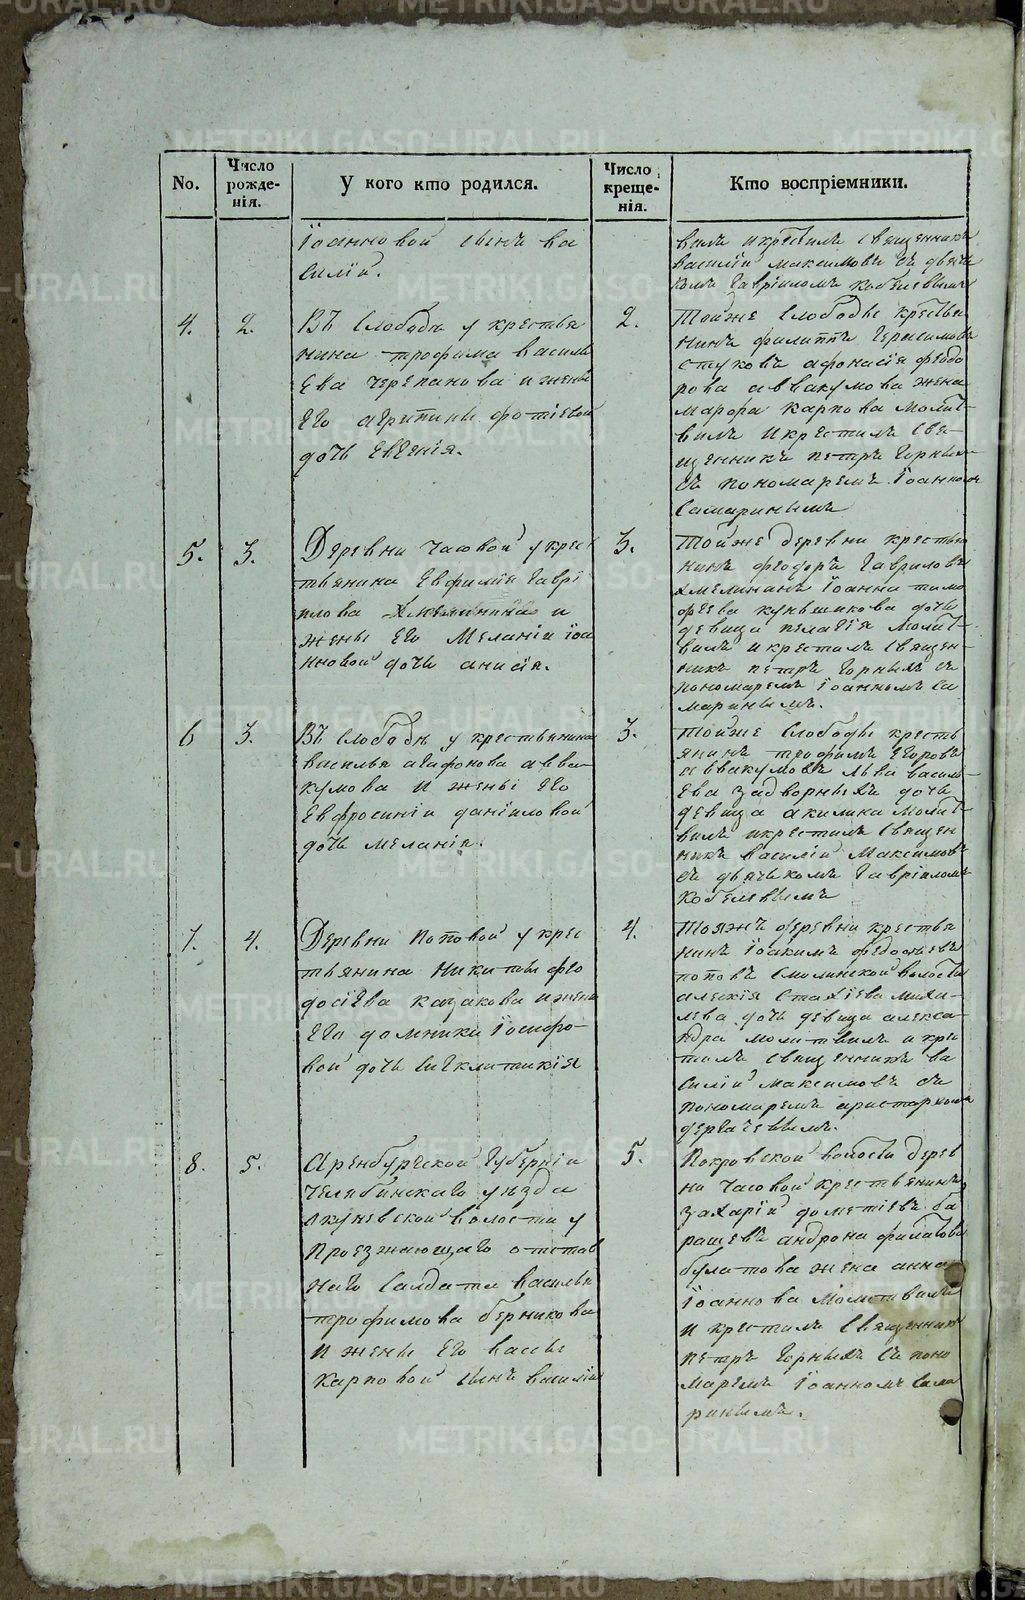 No.
Число рожде-нія.
У кого кто родился.
Число креще-нія.
Кто воспріемники.
Іоанновой сынъ ва
силій.
вилъ и крестилъ священникъ
василій максимовъ съ дьяч
комъ гавріиломъ кобелевымъ
4.
2.
Въ слободѣ у крестья
нина трофима василь
ева черепанова и жены
его агрипины фотіевой
дочь евгенія.
2.
тойже слободы крестья
нинъ филиппъ герасимовъ
стуковъ афонасія феодо
рова аввакумова жена
марфа карпова молит-
вилъ и крестилъ свя-
щенникъ петръ горныхъ
съ пономаремъ Іоанномъ
самаринымъ
5.
3.
Деревни часовой у крес
тьянина евфимія гаврі
илова хмелинина и
жены его меланіи іоа
нновой дочь анисія.
3.
тойже деревни крестья
нинъ феодоръ гавриловъ
хмелининъ Іоанна тимо
феева куньшикова дочь
девица пелагія молит-
вилъ и крестилъ священ-
никъ петръ горныхъ съ
пономаремъ Іоанномъ са
маринымъ.
6
3.
Въ слободѣ у крестьянина
василья агафонова авва-
кумова и жены его
евфросиніи даніиловой
дочь меланія.
3.
тойже слободы кресть
янинъ трофимъ егоровъ
аввакумовъ льва василь
ева задворныхъ дочь
девица акилина молит
вилъ и крестилъ священ
никъ василій максимовъ
съ дьячькомъ гавріиломъ
кобелевымъ
7.
4.
Деревни поповой у крес
тьянина никиты фео
досіева казакова и жены
его домники іосифо-
вой дочь сигклитикія
4.
тояжъ деревни крестья
нинъ іоакимъ федосѣевъ
поповъ смолинской волости
алексія стахіева михи-
лева дочь девица алекса-
ндра молитвилъ и кре
тилъ священникъ ва
силій максимовъ съ
пономаремъ аристархомъ
дергачевымъ.
8.
5.
Аренбургской губерніи
челябинскаго уѣзда
окуневской волости у
проезжающаго отстав
наго салдата василья
трофимова берникова
и жены его вассы
карповой сынъ василій
5.
Покровской волости дерев
ни часовой крестьянинъ
захарій дометіевъ ба
рашевъ андрона филатова
булатова жена анна
Іоаннова молитвилъ
и крестилъ священникъ
петръ горныхъ съ поно
маремъ Іоанномъ сама
ринымъ.